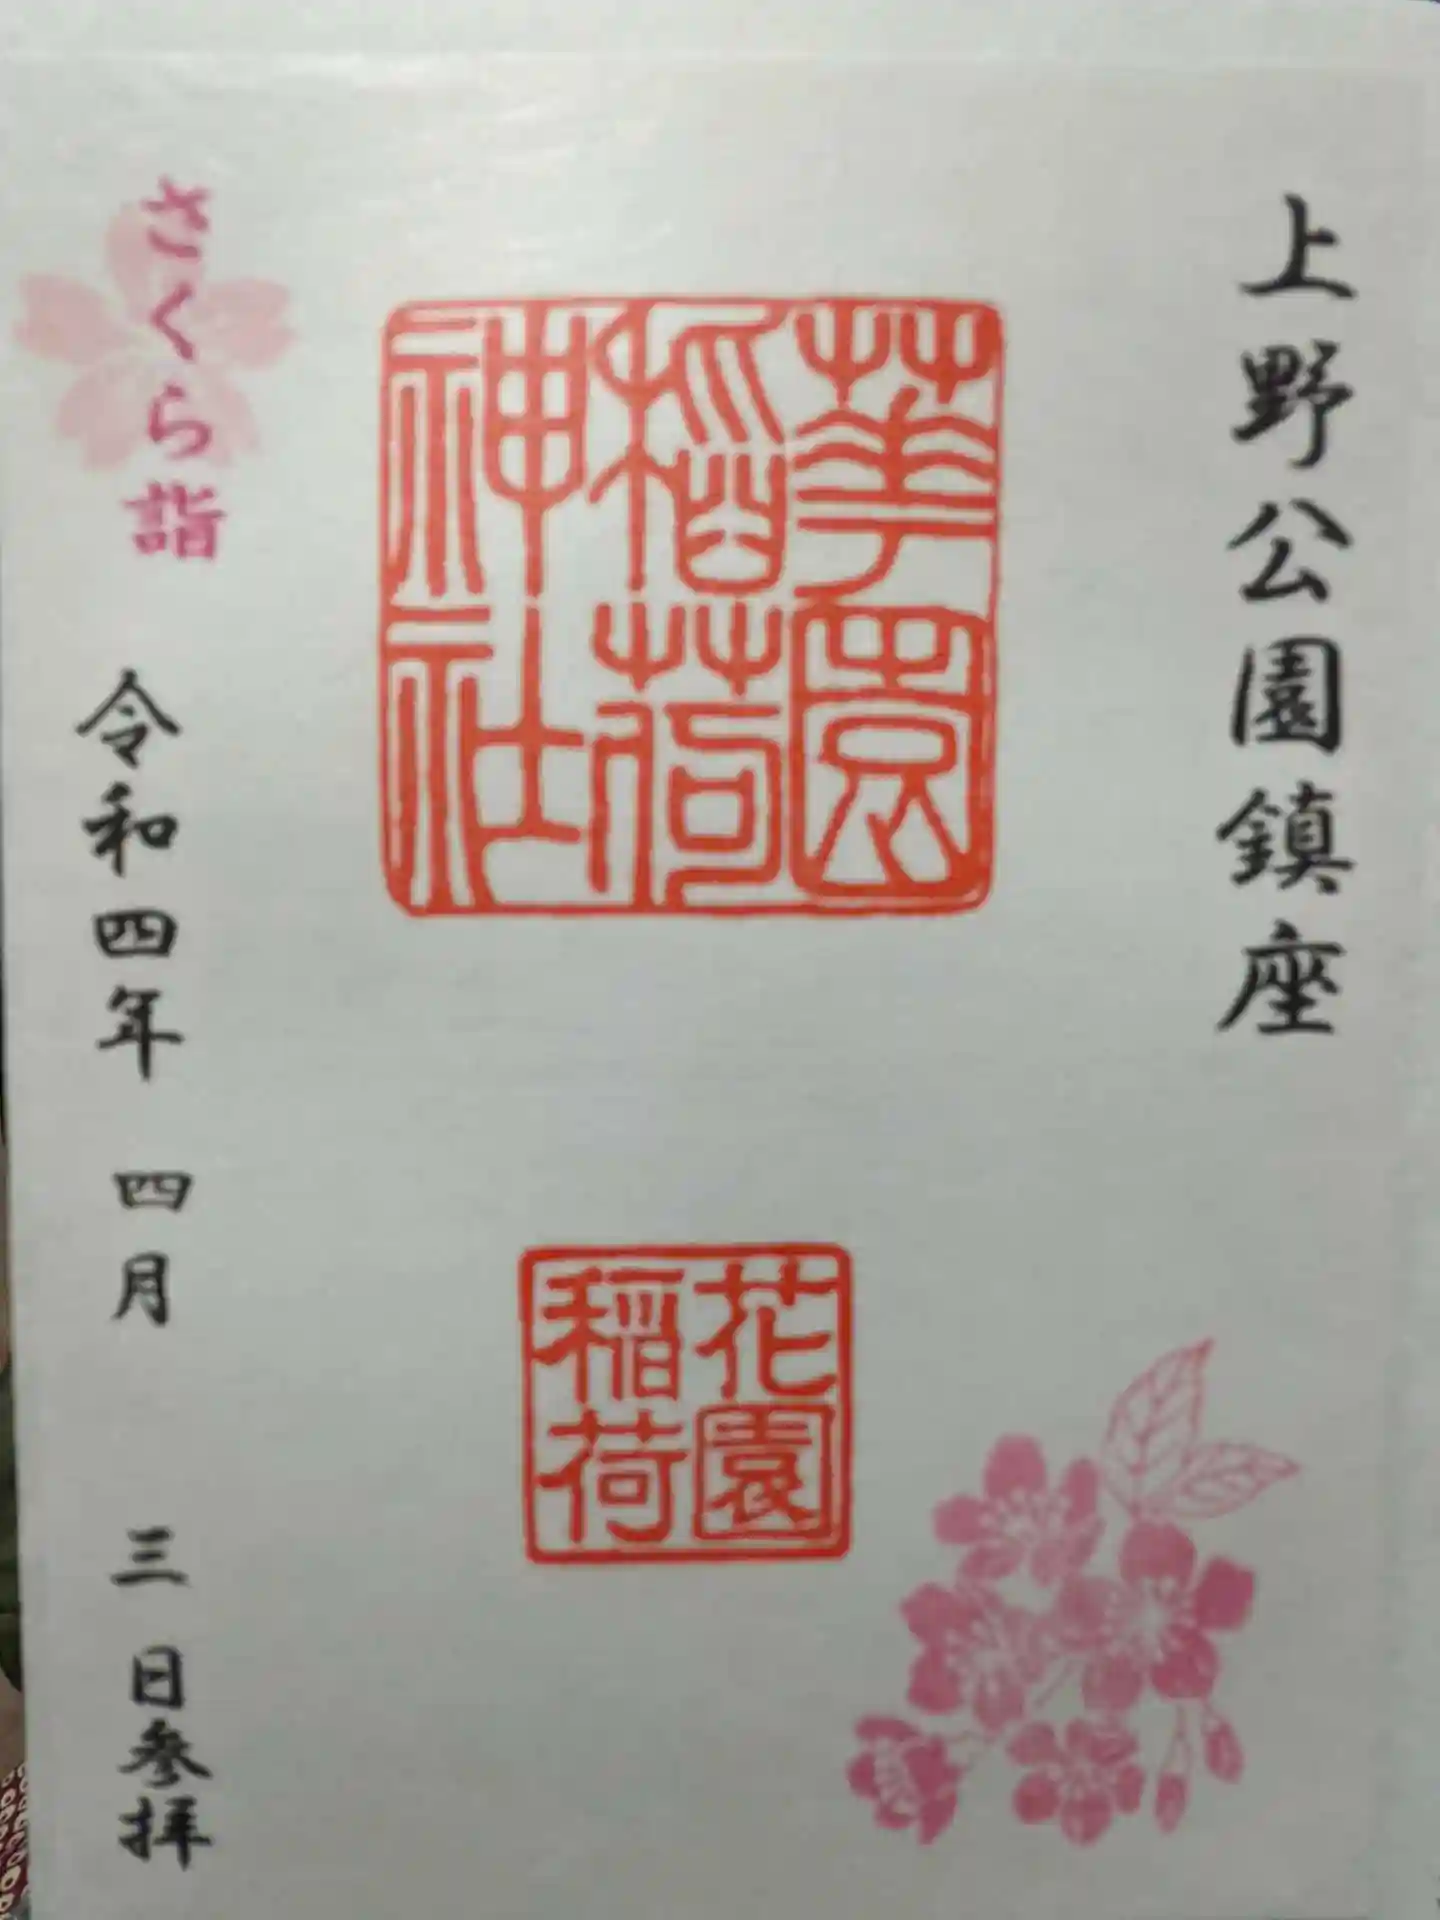 上野公園鎮座
華園
稲荷
神社
花園
稲荷
さくら詣
令和四年 四月 三日参拝